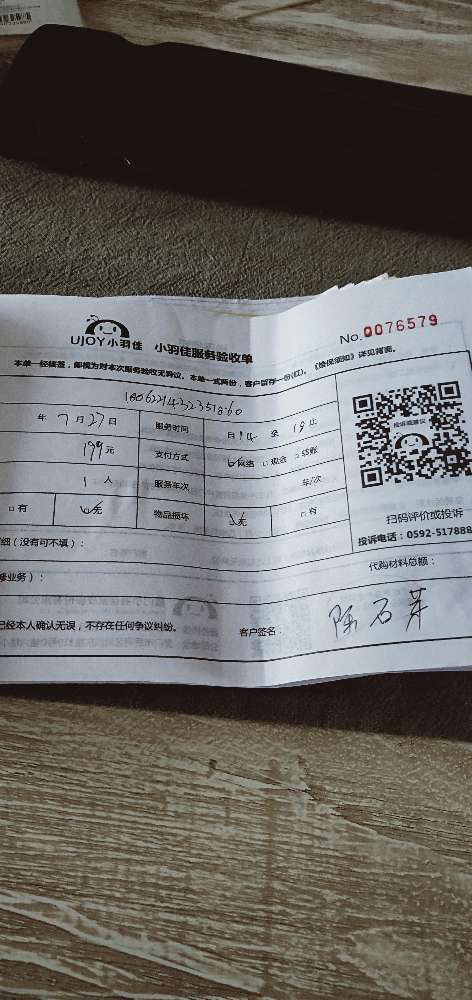 UJOY小羽佳 小羽佳服务验收单
No.0076579
本单一经核签，即视为对本次服务验收无异议。本单一式两份，客户留存一份(红)。《维保须知》详见背面。
年 7 月 27 日 服务时间 自 14 至 19 止
199 元 支付方式 网络 现金 转账
1 人 服务车次 车/次
有 无 物品损坏 无 有
投诉或建议
扫码评价或投诉
投诉电话：0592-517888
细（没有可不填）：
代购材料总额：
修业务）：
已经本人确认无误，不存在任何争议纠纷。 客户签名：